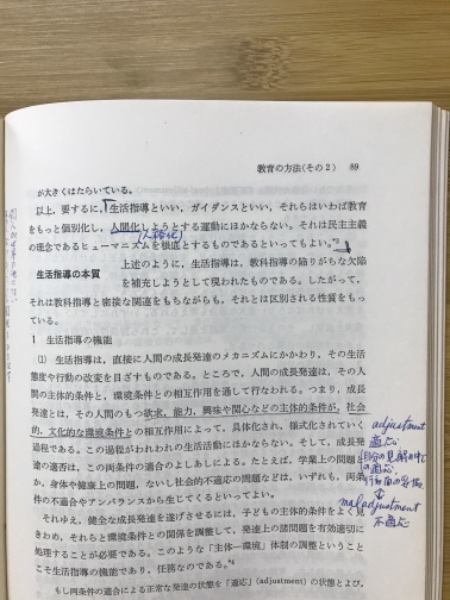 教育の方法(その2) 89
が大きくはたらいている。
以上，要するに，「生活指導といい，ガイダンスといい，それらはいわば教育
をもっと個別化し，人間化しようとする運動にほかならない。それは民主主義
の理念であるヒューマニズムを根底とするものであるといってもよい。」*3
生活指導の本質
上述のように，生活指導は，教科指導の陥りがちな欠陥
を補充しようとして現われたものである。したがって，
それは教科指導と密接な関連をもちながらも，それとは区別される性質をもっ
ている。
1 生活指導の機能
(1) 生活指導は，直接に人間の成長発達のメカニズムにかかわり，その生活
態度や行動の改変を目ざすものである。ところで，人間の成長発達は，その人
間の主体的条件と，環境条件との相互作用を通して行なわれる。つまり，成長
発達とは，その人間のもつ欲求，能力，興味や関心などの主体的条件が，社会
的，文化的な環境条件との相互作用によって，具体化され，様式化されていく
過程である。この過程がわれわれの生活活動にほかならない。そして，成長発
達の適否は，この両条件の適合のよしあしによる。たとえば，学業上の問題と
か，身体や健康上の問題，ないし社会的不適応の問題などは，いずれも，両条
件の不適合やアンバランスから生じてくるといってよい。
それゆえ，健全な成長発達を遂げさせるには，子どもの主体的条件をよく見
きわめ，それらと環境条件との関係を調整して，発達上の諸問題を有効適切に
処理することが必要である。このような「主体―環境」体制の調整ということ
こそ生活指導の機能であり，任務なのである。*4
もし両条件の適合による正常な発達の状態を「適応」(adjustment) の状態とよび，
adjustment
適応
maladjustment
不適応